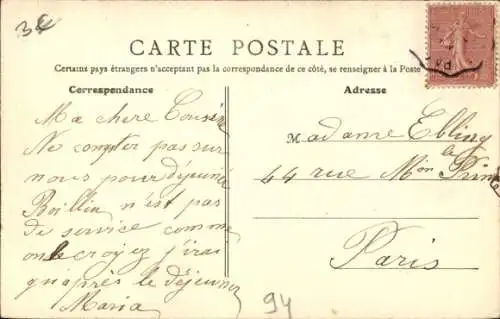 3€
CARTE POSTALE
Certains pays étrangers n'acceptant pas la correspondance de ce côté, se renseigner à la Poste
Correspondance
Adresse
Ma chere Cousine
Ne compter pas sur
nous pour déjeuné
Boillin n'est pas
de service comme
on le croyez j'irai
qu'après le déjeuner
Maria
Madame Ebling
44 rue Mon le Prince
Paris
94